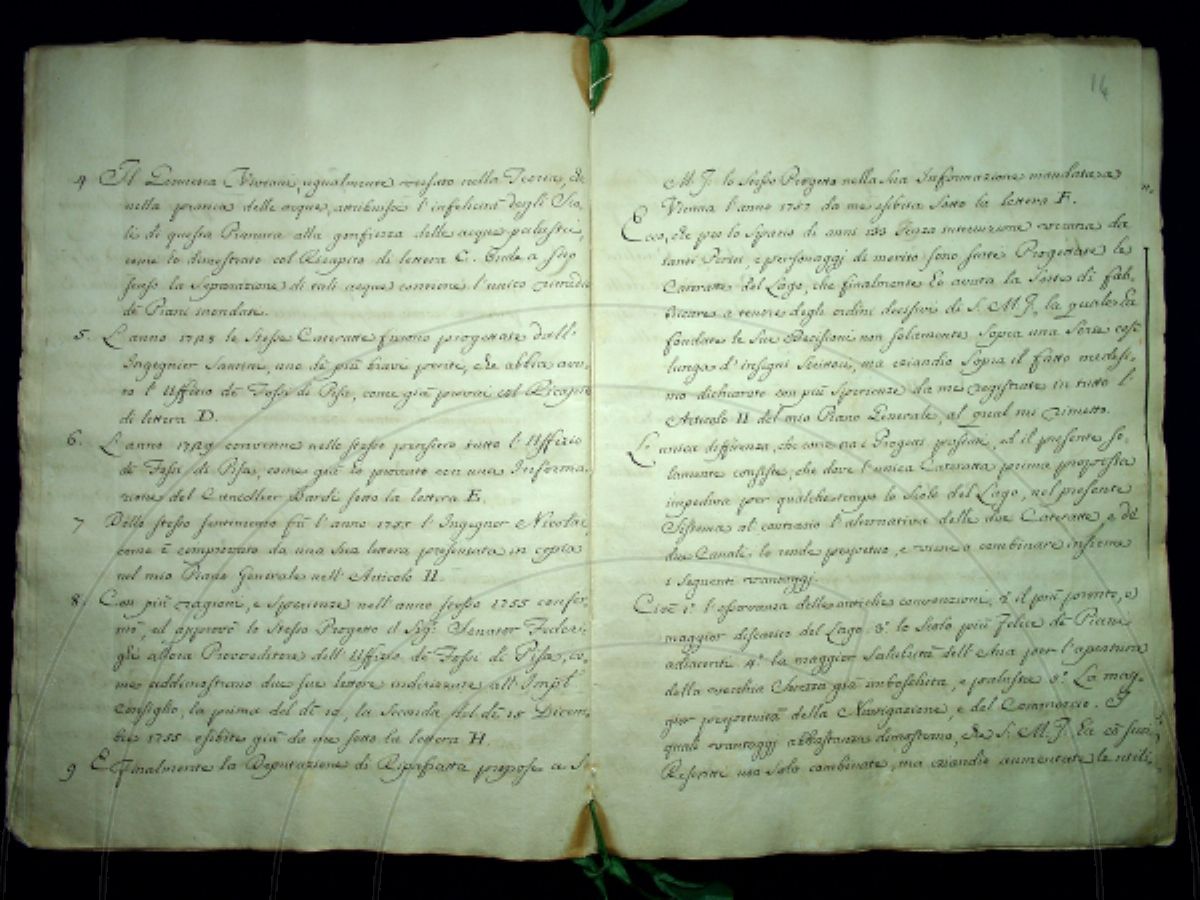 4 Il Geometra Viviani, egualmente versato nella Teoria, che
nella pratica delle acque, attribuisce l'infelicità degli Sco-
li di questa Pianura alla gonfiezza delle acque palustri,
come ho dimostrato col Recapito di lettera C. Onde a suo
senso la Separazione di tali acque conviene l'unico rimedio
de Piani inondati.
5. L'anno 1718 le stesse Cateratte furono progettate dall'
Ingegnier Saurin, uno de più bravi periti, che abbia avu-
to l'Uffizio de Fossi di Pisa, come già provai col Recapito
di lettera D.
6. L'anno 1729 convenne nello stesso pensiero tutto l'Uffizio
de Fossi di Pisa, come già ho provato con una Informa-
zione del Cancellier Bardi sotto la lettera E.
7 Dello stesso sentimento fù l'anno 1755 l'Ingegner Nicolai,
come è comprovato da una sua lettera presentata in copia
nel mio Piano Generale nell'Articolo II.
8. Con più ragioni, e sperienze nell'anno stesso 1755 confer-
mò, ed approvò lo stesso Progetto il Sigr. Senator Federi-
ghi allora Provveditore dell'Uffizio de Fossi di Pisa, co-
me addimostrano due sue lettere indirizzate all'Impl.
Consiglio, la prima del dì 10, la Seconda del dì 15 Dicem-
bre 1755 esibite già da me sotto la lettera H.
9 E finalmente la Deputazione di Ripafratta propose a S.
14
M. I. lo stesso Progetto nella sua Informazione mandata a
Vienna l'anno 1757 da me esibita sotto la lettera F.
Ecco, che per lo spazio di anni 133 senza interruzione veruna da
tanti Periti, e personaggi di merito sono state Progettate le
Cateratte del Lago, che finalmente ho avuta la Sorte di fab-
bricare a tenore degli ordini decisivi di S. M. I. la quale ha
fondate le sue Decisioni non solamente sopra una Serie così
lunga d'insigni Scrittori, ma eziandio sopra il fatto medesi-
mo dichiarato con più sperienze da me registrate in tutto l'
Articolo II del mio Piano Generale, al qual mi rimetto.
L'unica differenza, che corre tra i Progetti passati, ed il presente so-
lamente consiste, che dove l'unica Cateratta prima proposta
impediva per qualche tempo lo Scolo del Lago, nel presente
Sistema al contrario l'alternativa delle due Cateratte, e de
due Canali lo rende perpetuo, e viene a combinare insieme
i seguenti vantaggi.
Cioè 1° l'osservanza delle antiche convenzioni, 2° il più pronto, e
maggior discarico del Lago. 3° lo Scolo più felice de Piani
adiacenti 4° la maggior salubrità dell'Aria per l'apertura
della vecchia Chiezza già imboschita, e palustre 5° La mag-
gior perpetuità della Navigazione, e del Commercio. I
quali vantaggi abbastanza dimostrano, che S. M. I. ha co' suoi
Rescritti non solo combinate, ma eziandio aumentate le utili-